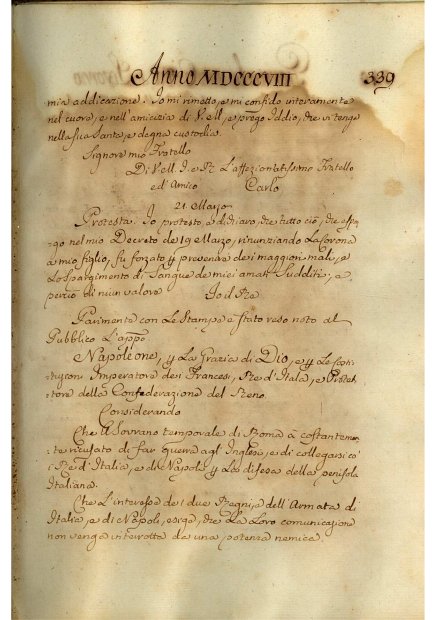 Anno MDCCCVIII 339
mia addicazione. Io mi rimetto, e mi confido interamente
nel cuore, e nell'amicizia di V. M, e prego Iddio, che vi tenga
nella sua santa, e degna custodia.
Signore mio Fratello
Di V. M. I. e R. L'affezionatissimo Fratello
ed' Amico Carlo
21 Marzo
Protesta. Io protesto, e dichiaro, che tutto ciò, che espon-
go nel mio Decreto de 19 Marzo, rinunziando La Corona
a mio figlio, fu forzato p prevenire dei maggiori mali, e
Lo spargimento di Sangue de miei amati Sudditi, e
perciò di niun valore Io il Re
Parimente con Le Stampe è stato reso noto al
Pubblico L'appo
Napoleone, p La Grazia di Dio, e p Le Costi-
tuzioni Imperatore den Francesi, Re d'Italia, e Protet-
tore della Confederazione del Reno.
Considerando
Che il Sovrano temporale di Roma à costantemen-
te ricusato di far guerra agl' Inglesi, e di collegarsi co'
i Re d'Italia, e di Napoli p La difesa della penisola
Italiana.
Che L'interesse de' due Regni, e dell'Armata di
Italia, e di Napoli, esige, che La Loro comunicazione
non venga interrotta da una potenza nemica.